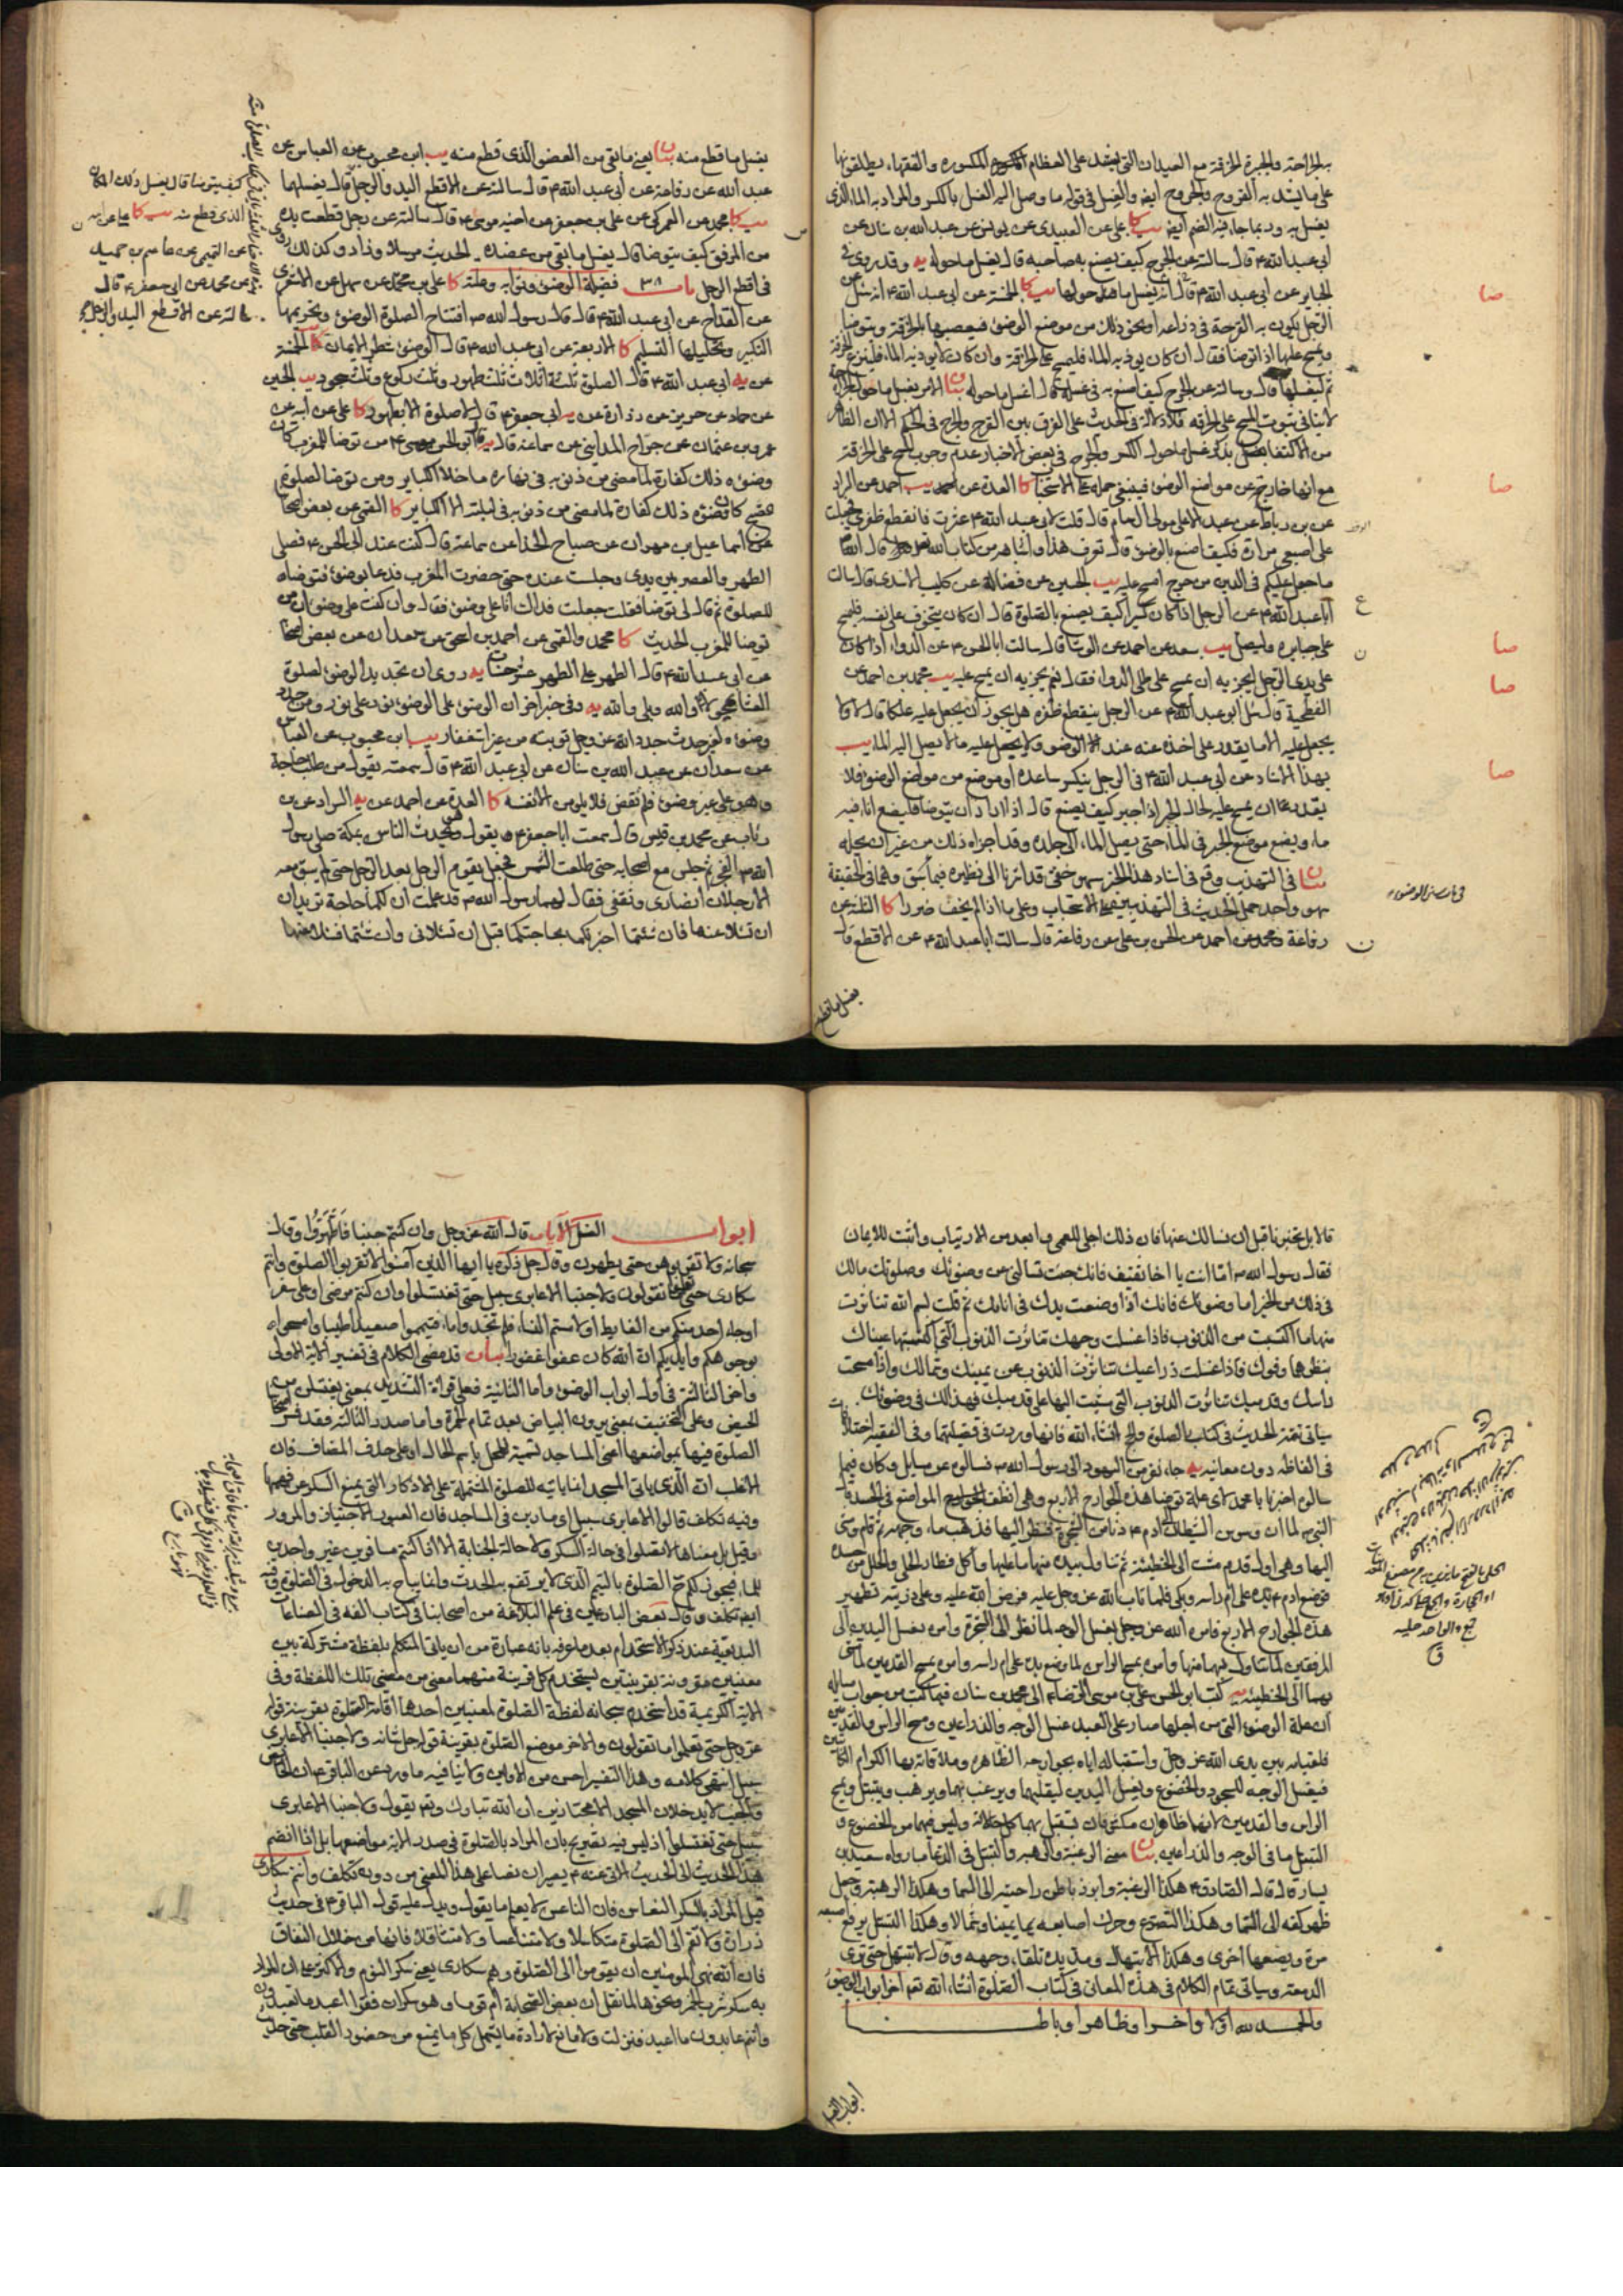 على ما يشد به القروح والجروح ايضا والغسل في قوله ما وصل اليه الغسل بالكسر والمراد به الماء الذي
يغسل به وربما جاء فيه الضم ايضا يب كا علي عن العبيدي عن يونس عن عبد الله بن سنان عن
ابي عبد الله ع قال سالته عن الجرح كيف يصنع به صاحبه قال يغسل ما حوله يه وقد روي في
الجباير عن ابي عبد الله ع قال انه يغسل ما حولها يب كا الخمسة عن ابي عبد الله ع انه سئل عن
الرجل يكون به القرحة في ذراعه او نحو ذلك من موضع الوضوء فيعصبها بالخرقة ويتوضا
ويمسح عليها اذا توضا فقال ان كان يوذيه الماء فليمسح على الخرقة وان كان لا يوذيه الماء فلينزع الخرقة
ثم ليغسلها قال وسالته عن الجرح كيف اصنع به في غسله قال اغسل ما حوله بيان الامر بغسل ما حول الجراحة
لا ينافي ثبوت المسح على الخرقة فلا دلالة في الحديث على الفرق بين القرح والجرح في الحكم الا ان الظاهر
مع انها خارج عن مواضع الوضوء فينبغي حمله على الاستحباب كا العدة عن احمد يب احمد عن السراد
عن بن رباط عن عبد الاعلى مولى ال سام قال قلت لابي عبد الله ع عثرت فانقطع ظفري فجعلت
على اصبعي مرارة فكيف اصنع بالوضوء قال تعرف هذا واشباهه من كتاب الله قال الله
ما جعل عليكم في الدين من حرج امسح عليه يب الحسين عن فضالة عن كليب الاسدي قال سالت
ابا عبد الله ع عن الرجل اذا كان كسيرا كيف يصنع بالصلوة قال ان كان يتخوف على نفسه فليمسح
على جبايره وليصل يب سعد عن احمد عن الوشا قال سالت ابا الحسن ع عن الدواء اذا كان
على يدي الرجل ايجزيه ان يمسح على طلي الدوا فقال نعم يجزيه ان يمسح عليه يب محمد بن احمد عن
الفطحية قال سئل ابو عبد الله ع عن الرجل ينقطع ظفره هل يجوز ان يجعل عليه علكا قال لا ولا
يجعل عليه الا ما يقدر على اخذه عنه عند الوضوء ولا يجعل عليه ما لا يصل اليه الماء يب
بهذا الاسناد عن ابي عبد الله ع في الرجل ينكسر ساعده او موضع من مواضع الوضوء فلا
يقدر ان يمسح عليه لحال الجبر اذا جبر كيف يصنع قال اذا اراد ان يتوضا فليضع اناء فيه
ماء ويضع موضع الجبر في الماء حتى يصل الماء الى جلده وقد اجزاه ذلك من غير ان يحله
بيان في التهذيب وقع في اسناد هذا الخبر سهو خفي قد اشرنا الى نظيره فيما سبق وهما في الحقيقة
سهو واحد حمل الحديث في التهذيبين على الاستحباب وعلى ما اذا لم يخف ضررا كا الثلثة عن
رفاعة ومحمد عن احمد عن الحسن بن علي عن رفاعة قال سالت ابا عبد الله ع عن الاقطع قال
صا
صا
صا
صا
صا
يغسل ما قطع
يغسل ما قطع منه بيان يعني ما بقي من العضو الذي قطع منه يب ابن محبوب عن العباس عن
عبد الله عن رفاعة عن ابي عبد الله ع قال سالته عن الاقطع اليد والرجل قال يغسلهما
يب كا محمد عن العمركي عن علي بن جعفر عن اخيه موسى ع قال سالته عن رجل قطعت يده
من المرفق كيف يتوضا قال يغسل ما بقي من عضده يه الحديث مرسلا وزاد وكذلك روي
في اقطع الرجل باب ٣٨ فضيلة الوضوء وثوابه وعلته كا علي بن محمد عن سهل عن الاشعري
عن القداح عن ابي عبد الله ع قال قال رسول الله ص افتتاح الصلوة الوضوء وتحريمها
التكبير وتحليلها التسليم كا الاربعة عن ابي عبد الله ع قال الوضوء شطر الايمان كا الخمسة
عن يه ابي عبد الله ع قال الصلوة ثلثة اثلاث ثلث طهور وثلث ركوع وثلث سجود يب الحسين
عن حماد عن حريز عن زرارة عن يه ابي جعفر ع قال لا صلوة الا بطهور كا علي عن ابيه عن
عمرو بن عثمان عن جراح المدايني عن سماعة قال يه قال ابو الحسن موسى ع من توضا للمغرب كان
وضوءه ذلك كفارة لما مضى من ذنوبه في نهاره ما خلا الكباير ومن توضا لصلوة
الصبح كان وضوءه ذلك كفارة لما مضى من ذنوبه في ليلته الا الكباير كا القمي عن بعض اصحابنا
عن اسماعيل بن مهران عن صباح الحذا عن سماعة قال كنت عند ابي الحسن ع فصلى
الظهر والعصر بين يدي وجلست عنده حتى حضرت المغرب فدعا بوضوء فتوضا
للصلوة ثم قال لي توضا فقلت جعلت فداك انا على وضوء فقال وان كنت على وضوء ان من
توضا للمغرب الحديث كا محمد والقمي عن احمد بن اسحق عن سعدان عن بعض اصحابنا
عن ابي عبد الله ع قال الطهر على الطهر عشر حسنات يه روي ان تجديد الوضوء لصلوة
العشاء يمحو لا والله وبلى والله يه وفي خبر اخر ان الوضوء على الوضوء نور على نور ومن جدد
وضوءه لغير حدث جدد الله عز وجل توبته من غير استغفار يب ابن محبوب عن العباس
عن سعدان عن عبد الله بن سنان عن ابي عبد الله ع قال سمعته يقول من طلب حاجة
وهو على غير وضوء فلم تقض فلا يلومن الا نفسه كا العدة عن احمد عن يه السراد عن بن
رئاب عن محمد بن قيس قال سمعت ابا جعفر ع يقول وهو يحدث الناس بمكة صلى رسول
الله ص الفجر ثم جلس مع اصحابه حتى طلعت الشمس فجعل يقوم الرجل بعد الرجل حتى لم يبق معه
الا رجلان انصاري وثقفي فقال لهما رسول الله ص قد علمت ان لكما حاجة تريدان
ان تسئلا عنها فان شئتما اخبرتكما بحاجتكما قبل ان تسئلاني وان شئتما فسلا عنها
قالا بل تخبرنا قبل ان نسالك عنها فان ذلك اجلى للعمى وابعد من الارتياب واثبت للايمان
فقال رسول الله ص اما انت يا اخا ثقيف فانك جئت تسالني عن وضوئك وصلوتك مالك
في ذلك من الخير اما وضوئك فانك اذا وضعت يدك في انائك ثم قلت بسم الله تناثرت
منها ما اكتسبت من الذنوب فاذا غسلت وجهك تناثرت الذنوب التي اكتسبتها عيناك
بنظرهما وفوك فاذا غسلت ذراعيك تناثرت الذنوب عن يمينك وشمالك واذا مسحت
راسك وقدميك تناثرت الذنوب التي مشيت اليها على قدميك فهذا لك في وضوئك
في الفاظه دون معانيه يه جاء نفر من اليهود الى رسول الله ص فسالوه عن مسايل وكان فيما
سالوه اخبرنا يا محمد لاي علة توضا هذه الجوارح الاربع وهي انظف المواضع في الجسد قال
النبي ص لما ان وسوس الشيطان الى ادم ع دنا من الشجرة فنظر اليها فذهب ماء وجهه ثم قام ومشى
اليها وهي اول قدم مشت الى الخطيئة ثم تناول بيده منها ما عليها واكل فطار الحلي والحلل من جسده
فوضع ادم ع يده على ام راسه وبكى فلما تاب الله عز وجل عليه فرض الله عليه وعلى ذريته تطهير
هذه الجوارح الاربع فامر الله عز وجل بغسل الوجه لما نظر الى الشجرة وامره بغسل اليدين الى
المرفقين لما تناول بهما منها وامره بمسح الراس لما وضع يده على ام راسه وامره بمسح القدمين لما مشى
بهما الى الخطيئة يه كتب ابو الحسن علي بن موسى الرضا ع الى محمد بن سنان فيما كتب من جواب مسائله
ان علة الوضوء التي من اجلها صار على العبد غسل الوجه والذراعين ومسح الراس والقدمين
فلقيامه بين يدي الله عز وجل واستقباله اياه بجوارحه الظاهرة وملاقاته بها الكرام الكاتبين
فيغسل الوجه للسجود والخضوع ويغسل اليدين ليقلبهما ويرغب بهما ويرهب ويتبتل ويمسح
الراس والقدمين لانهما ظاهران مكشوفان يستقبل بهما كل حالاته وليس فيهما من الخضوع و
التبتل ما في الوجه والذراعين بيان معنى الرغبة والرهبة والتبتل في الدعاء ما رواه سعيد بن
يسار قال قال الصادق ع هكذا الرغبة وابرز باطن راحتيه الى السما وهكذا الرهبة وجعل
ظهر كفه الى السما وهكذا التضرع وحرك اصابعه يمينا وشمالا وهكذا التبتل يرفع اصبعه
مرة ويضعها اخرى وهكذا الابتهال ومد يده تلقاء وجهه وقال لا تبتهل حتى ترى
الدمعة وسياتي تمام الكلام في هذه المعاني في كتاب الصلوة انشاء الله تعم اخر ابواب الوضوء
والحمد لله اولا واخرا وظاهرا وباطنا
ابواب الغسل
ابواب الغسل الايات قال الله عز وجل وان كنتم جنبا فَاطَّهَّرُوا وقال
سبحانه ولا تقربوهن حتى يطهرن وقال جل ذكره يا ايها الذين آمنوا لا تقربوا الصلوة وانتم
سكارى حتى تعلموا ما تقولون ولا جنبا الا عابري سبيل حتى تغتسلوا وان كنتم مرضى او على سفر
او جاء احد منكم من الغايط او لامستم النساء فلم تجدوا ماء فتيمموا صعيدا طيبا وامسحوا
بوجوهكم وايديكم ان الله كان عفوا غفورا بيان قد مضى الكلام في تفسير الاية الاولى
واخر الثالثة في اول ابواب الوضوء واما الثانية فعلى قراءة التشديد بمعنى يغتسلن من
الحيض وعلى التخفيف بمعنى يرون البياض بعد تمام الحمرة واما صدر الثالثة فقد فسر اصحابنا
الصلوة فيها بمواضعها اعني المساجد تسمية للمحل باسم الحال او على حذف المضاف فان
الاغلب ان الذي ياتي المسجد انما ياتيه للصلوة المشتملة على الاذكار التي يمنع السكر عن فهمها
وفيه تكلف قالوا الا عابري سبيل اي مارين في المساجد فان العبور الاجتياز والمرور
وقيل بل معناها لا تصلوا في حالة السكر ولا حالة الجنابة الا اذا كنتم مسافرين غير واجدين
للماء فيجوز لكم ح الصلوة بالتيمم الذي لا يرتفع به الحدث وانما يباح به الدخول في الصلوة وفيه
ايضا تكلف وقال بعض البارعين في علم البلاغة من اصحابنا في كتاب الفه في الصناعات
البديعية عند ذكر الاستخدام بعد ما عرفه بانه عبارة من ان ياتي المتكلم بلفظة مشتركة بين
معنيين مقرونة بقرينتين يستخدم كل قرينة منهما معنى من معنى تلك اللفظة وفي
الاية الكريمة قد استخدم سبحانه لفظة الصلوة لمعنيين احدهما اقامة الصلوة بقرينة قوله
عز وجل حتى تعلموا ما تقولون والاخر موضع الصلوة بقرينة قوله جل شانه ولا جنبا الا عابري
سبيل انتهى كلامه وهذا التفسير احسن من الاولين ولا ينافيه ما ورد عن الباقر ع ان الحايض
والجنب لا يدخلان المسجد الا مجتازين ان الله تبارك وتعم يقول ولا جنبا الا عابري
سبيل حتى تغتسلوا اذ ليس فيه تصريح بان المراد بالصلوة في صدر الاية مواضعها بل اذا انضم
هذا الحديث الى الحديث الاتي عنه ع يصيران نصا على هذا المعنى من دون تكلف وانتم سكارى
قيل المراد بالسكر النعاس فان الناعس لا يعلم ما يقول ويدل عليه قول الباقر ع في حديث
زرارة ولا تقم الى الصلوة متكاسلا ولا متناعسا ولا متثاقلا فانها من خلال النفاق
فان الله نهى المومنين ان يقوموا الى الصلوة وهم سكارى يعني سكر النوم والاكثر على ان المراد
به سكر شرب الخمر ونحوها لما نقل ان بعض الصحابة ام قوما وهو سكران فقرا اعبد ما تعبدون
وانتم عابدون ما اعبد فنزلت ولا مانع لارادة ما يشمل كل ما يمنع من حضور القلب حتى